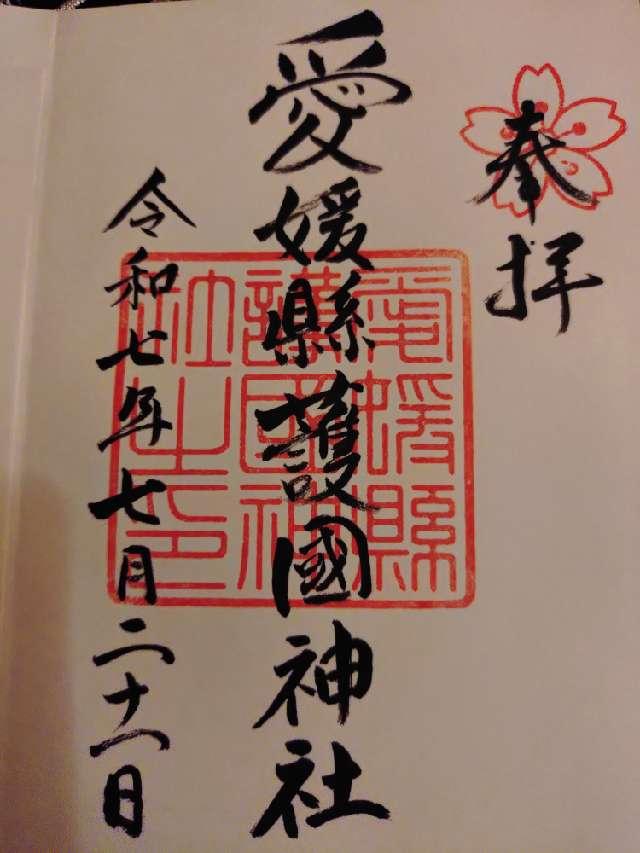 奉拝
愛媛縣護國神社
愛媛縣
護國神
社之印
令和七年七月二十一日